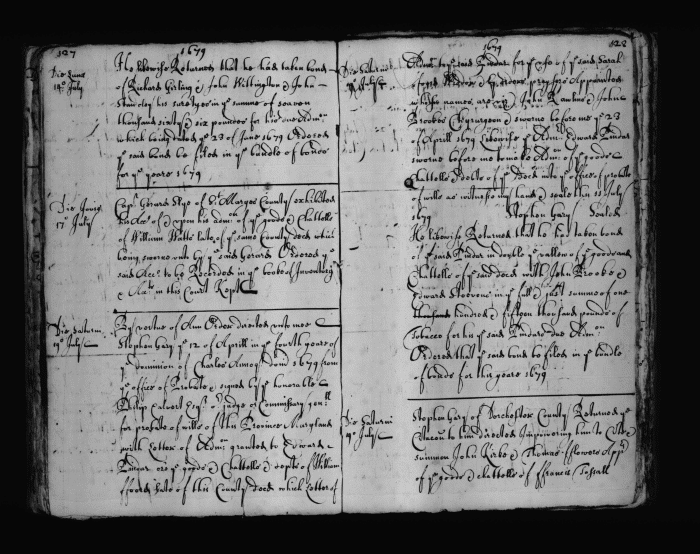 127
1679
Die Lune
14º July
He likewise Returnes that he had taken bond
of Richard Girling & John Willington & John
Standley his suretyes in yᵉ summe of seaven
thousand sixty & six pounces for his due Admᵒⁿ
which being dated yᵉ 23 of June 1679 Ordered
yᵉ said bond be filed in yᵉ bundle of bonds
for yᵉ yeare 1679
Die Jovis
17º July
Capᵗ Gerard Slye of Sᵗ Maryes County exhibited
his Accᵗ of & upon his admᵒⁿ of yᵉ goods & Chattells
of William Watts late of yᵉ same County decd which
being sworne unto by yᵉ said Gerard Ordered yᵉ
said Accᵗ to be Recorded in yᵉ booke of Inventory
& Accᵗˢ in this Court Kept
Die Saturni
19º July
By virtue of Ann Order directed unto mee
Stephen Gary yᵉ 12 of Aprill in yᵉ fourth yeare of
yᵉ dominion of Charles Annoq Dom 1679 from
yᵉ office of Probate & signed by yᵉ honorable
Philip Calvert Esqʳ Judge or Commissary genˡˡ
for probate of wills of this Province Maryland
with Letter of Admᵒⁿ granted to Edward
Pindar over yᵉ goods & Chattells & debts of William
Foord late of this County decd which Letter of
1679
128
Die Saturni
19 July
Admᵒⁿ yᵉ said Pindar for yᵉ of yᵉ said Sarah
Appraisors Appointed
whose names are John Rawlins & John
Brookes Chyrurgeon & sworne before me yᵉ 23
of Aprill 1679 Likewise yᵉ Admʳ Edward Pindar
sworne before me to make Admᵒⁿ of yᵉ goods
Chattells & debts of yᵉ decd into yᵉ office of probate
of wills as witness my hand & seale this 12 July
1679 Stephen Gary Sealed
He likewise Returned that he had taken bond
of yᵉ said Pindar in double yᵉ vallew of yᵉ goods and
Chattells of yᵉ said decd with John Brooke &
Edward Stevens in yᵉ full & just summe of one
hundred & fifteen thousand pounds of
Tobacco for his yᵉ said Pindars due Admᵒⁿ
Ordered that yᵉ said bond be filed in yᵉ bundle
of bonds for this yeare 1679
Die Saturni
19º July
Stephen Gary of Dorchester County Returned yᵉ
to him directed Impowering him to
summon John Kirke & Thomas Fflowers Appʳˢ
of yᵉ goods & chattells of ffrancis Tassall